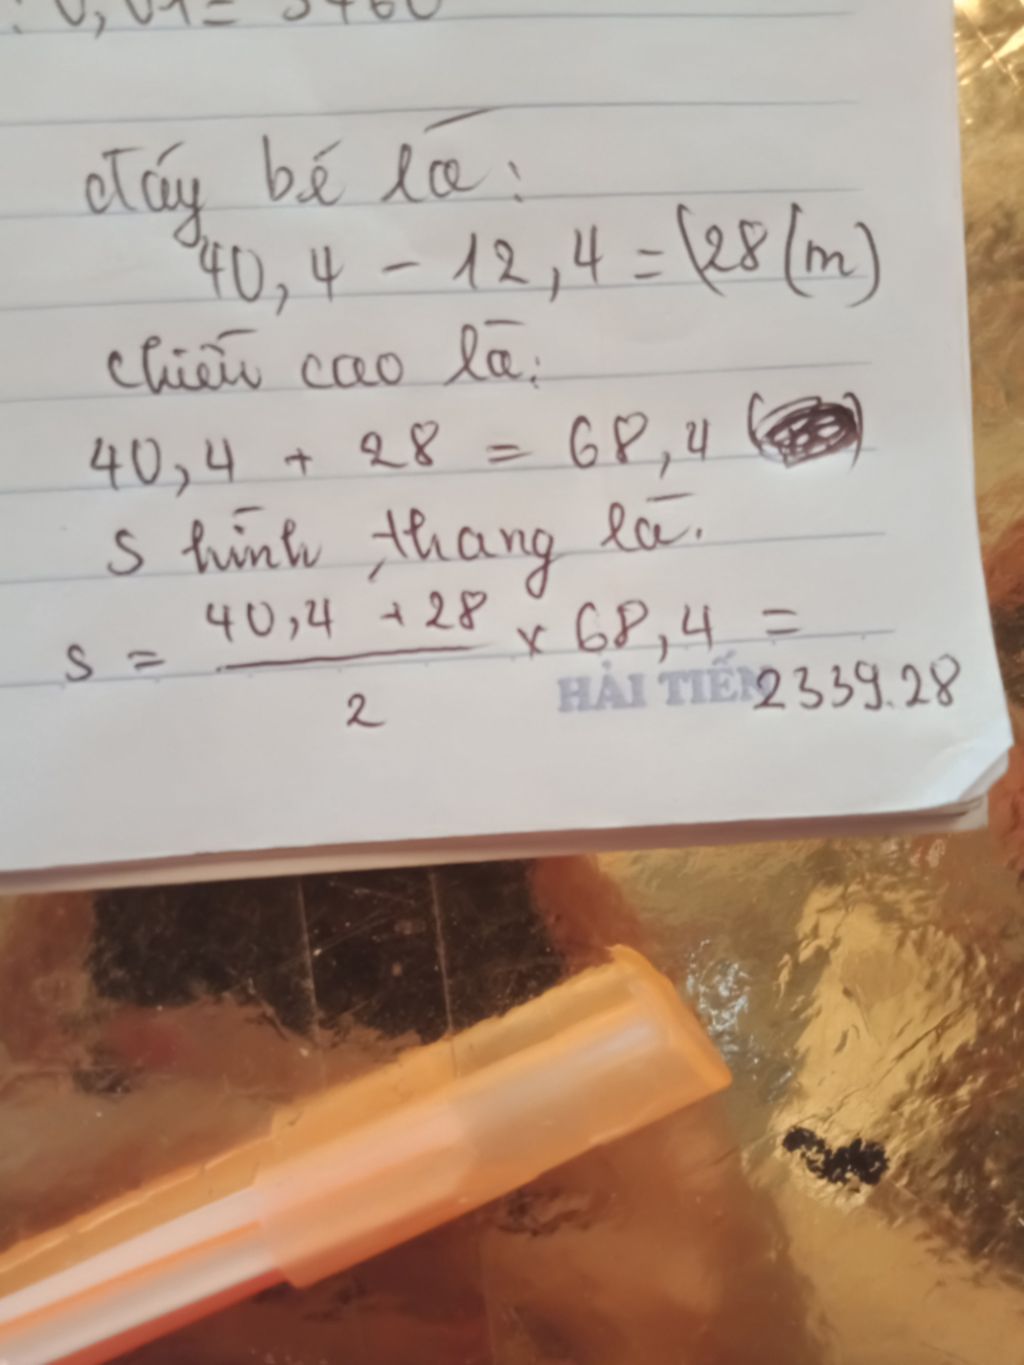 = 3460
đáy bé là:
40,4 - 12,4 = (28 (m)
chiều cao là:
40,4 + 28 = 68,4 ( )
S hình thang là.
40,4 + 28
S = × 68,4 =
2
HẢI TIẾN
2339.28